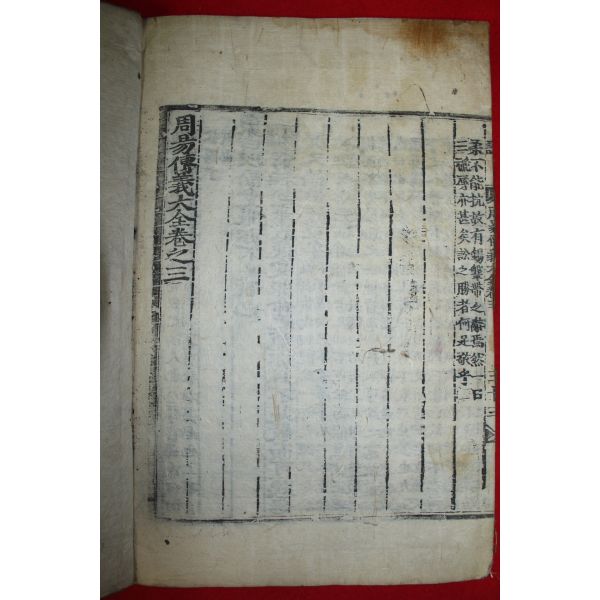 周易傳義大全卷三
柔不能抗故有錫鞶帶之辭焉然一日
三褫辱亦甚矣訟之勝者何足敬乎
周易傳義大全卷之三